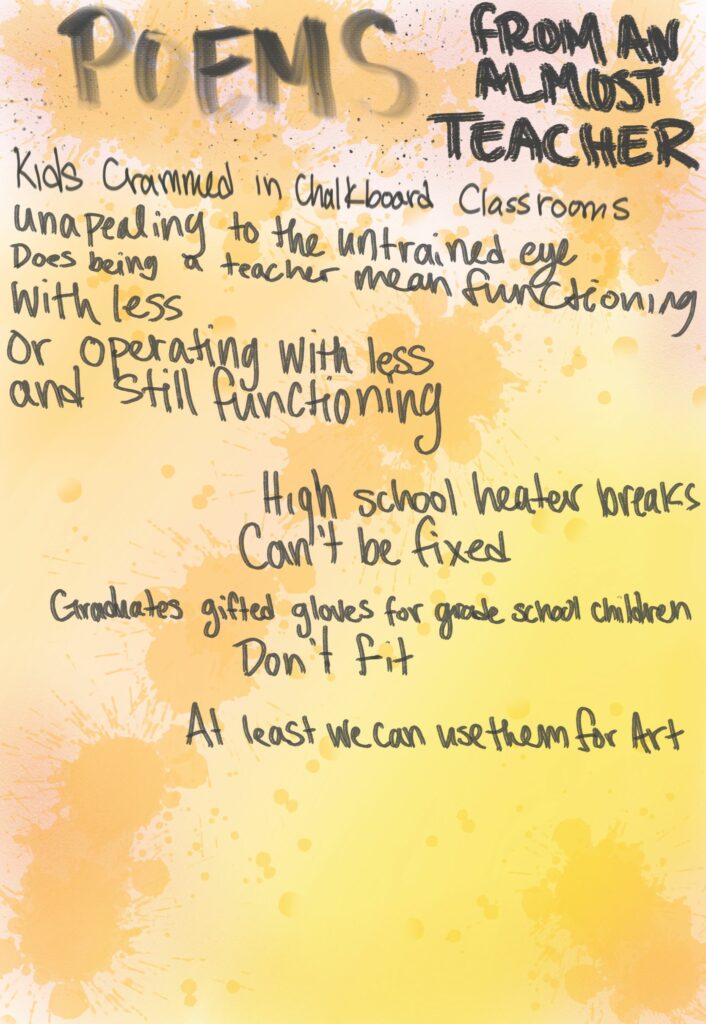 POEMS
FROM AN
ALMOST
TEACHER
Kids Crammed in Chalkboard Classrooms
unapealing to the untrained eye
Does being a teacher mean functioning
With less
Or operating with less
and still functioning
High school heater breaks
Can't be fixed
Graduates gifted gloves for grade school children
Don't fit
At least we can use them for Art